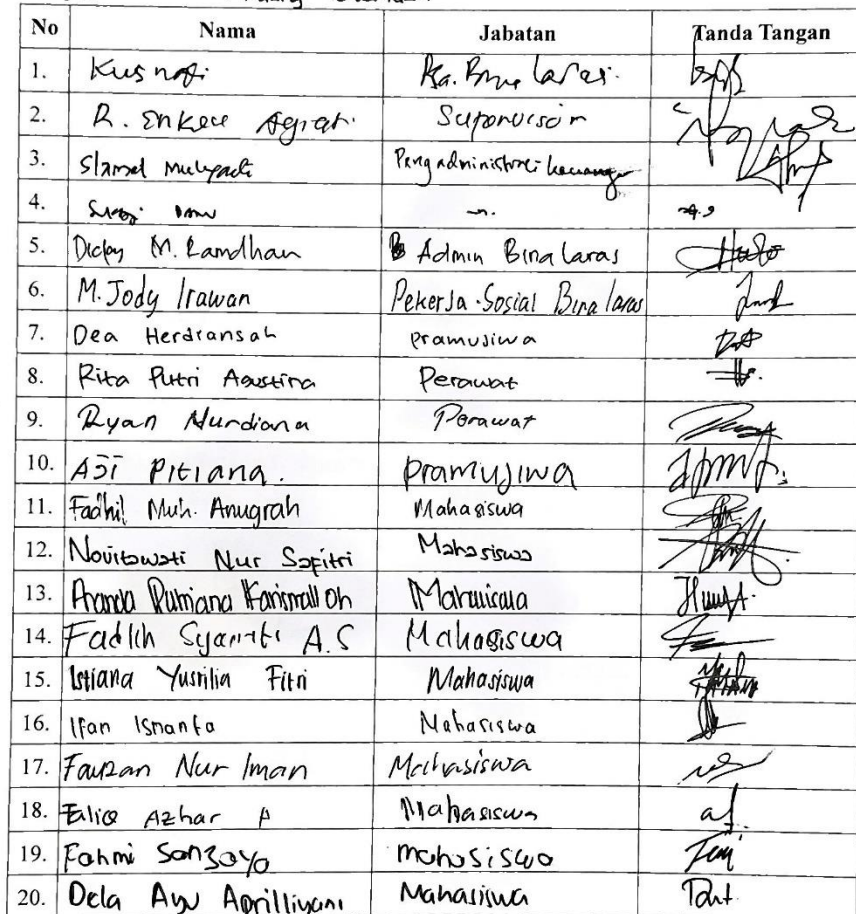 No Nama Jabatan Tanda Tangan
1. Kusnafi Ka. Bina laras.
2. R. Enkece Agiat. Supervisor
3. Slamet Mulyadi Pengadministrasi keuangan
4.
5. Dicky M. Ramdhan Admin Bina laras
6. M. Jody Irawan Pekerja Sosial Bina laras
7. Dea Herdiansah pramujiwa
8. Rita Putri Agustina Perawat
9. Ryan Nurdiana Perawat
10. AJi Pitiana. pramujiwa
11. Fadhil Muh. Anugrah Mahasiswa
12. Novitawati Nur Sapitri Mahasiswa
13. Ananda Mahasiswa
14. Fadlih A.S Mahasiswa
15. Istiana Yusrilia Fitri Mahasiswa
16. Ifan Isnanta Mahasiswa
17. Fauzan Nur Iman Mahasiswa
18. Azhar A Mahasiswa
19. Fahmi Sanjaya mahasiswa
20. Dela Ayu Aprilliyani Mahasiswa